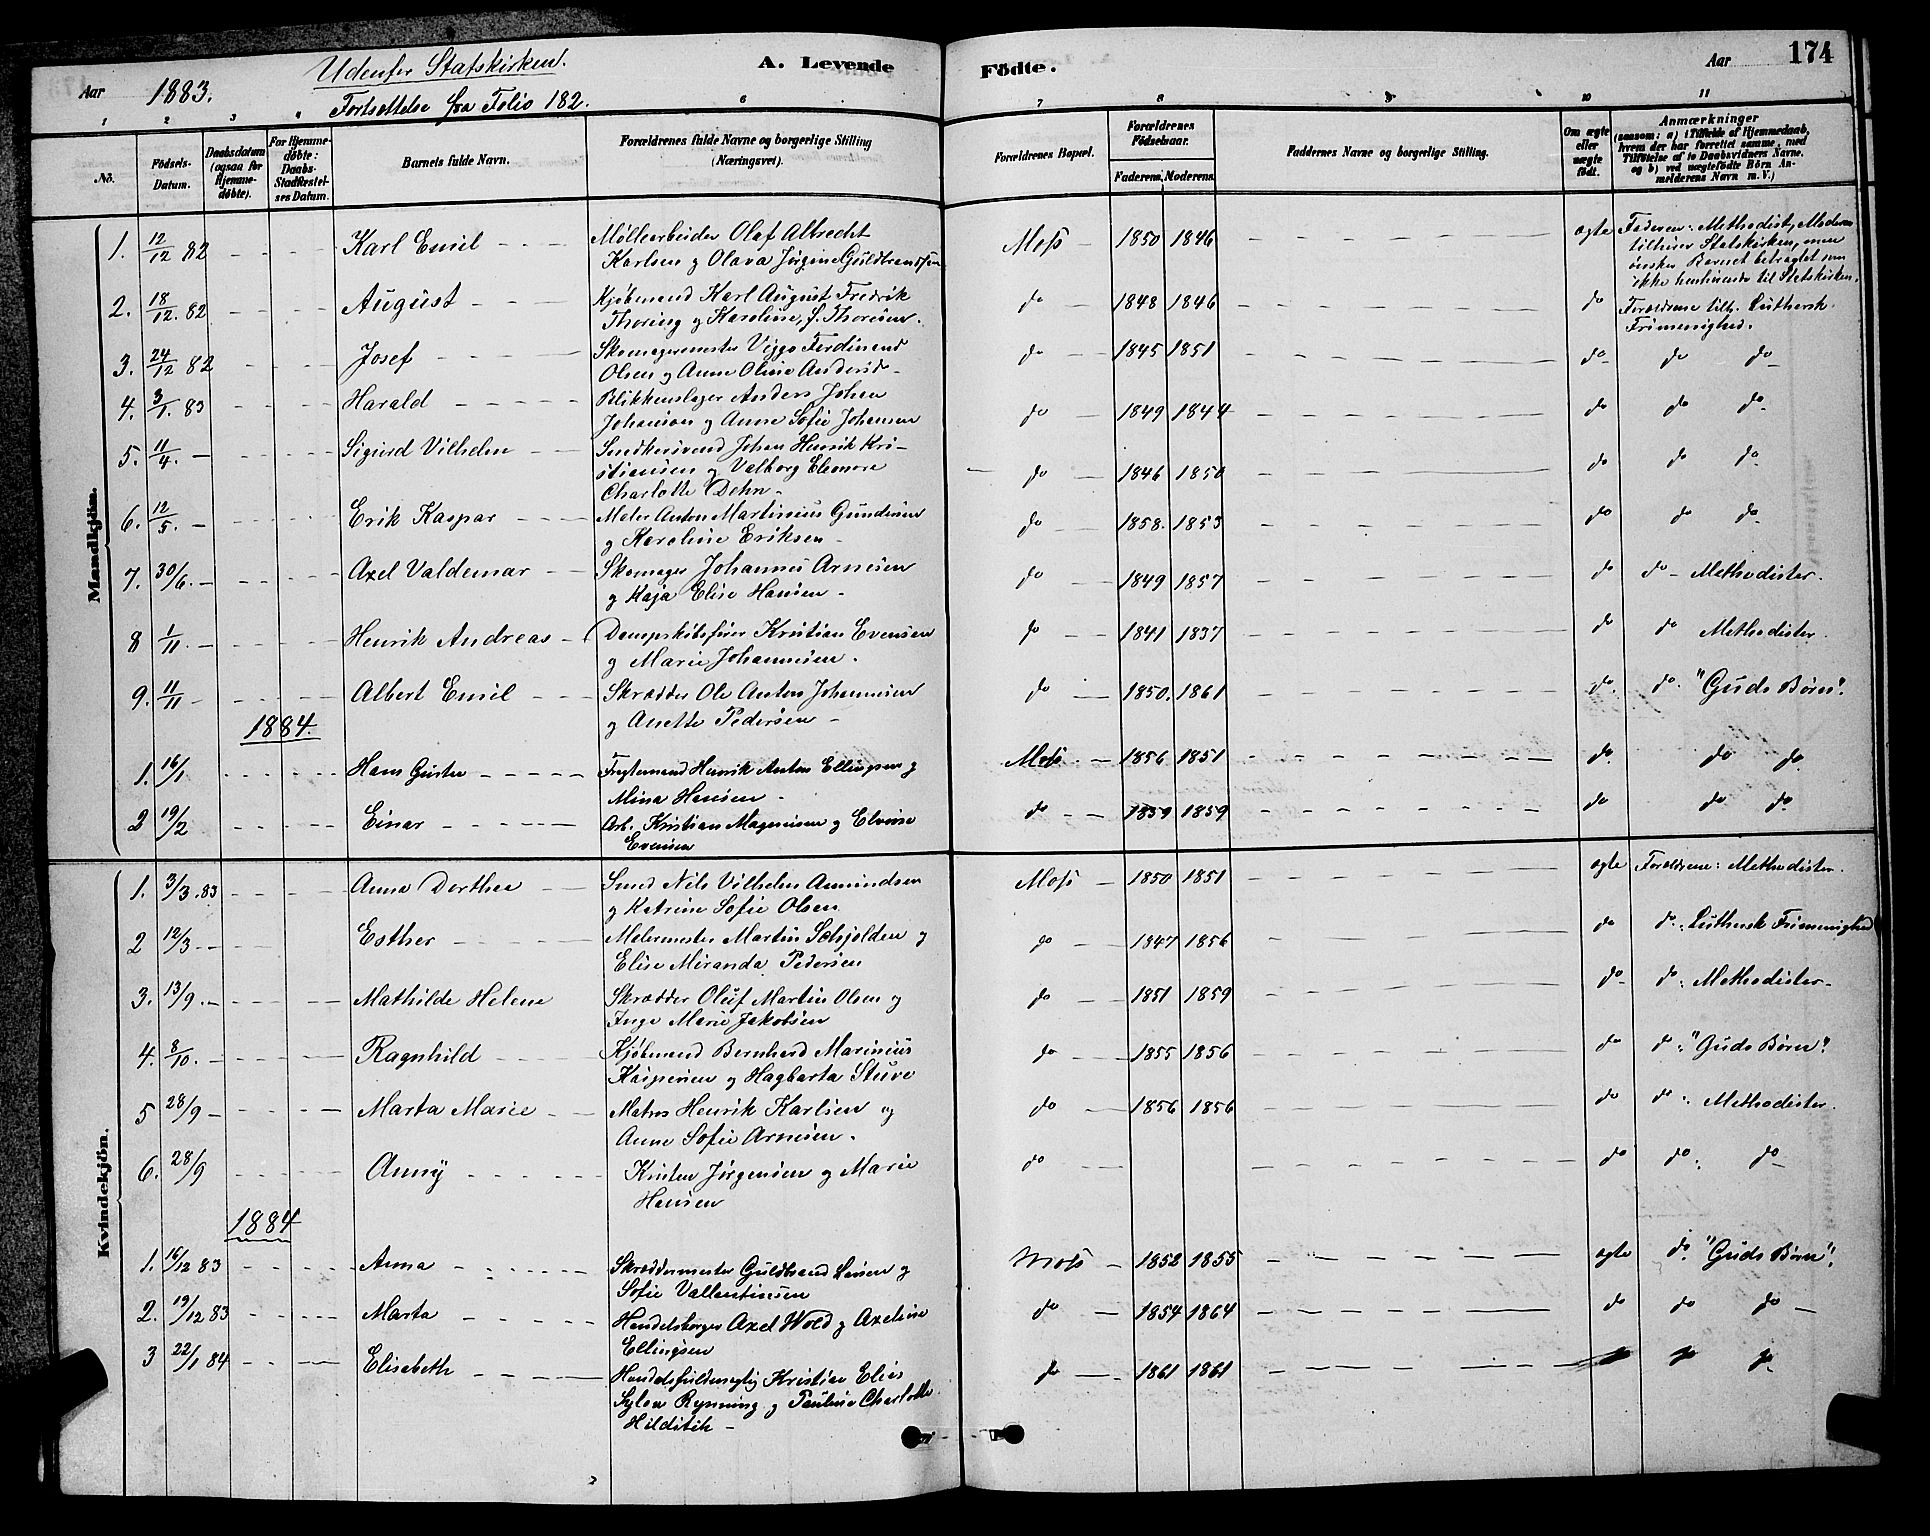 Udenfor Statskirken.
A. Levende Födte.
Aar 174
Aar 1883.
Fortsættelse fra Folio 182.
1 2 3 4 6 7 8 9 10 11
No. Födsels-Datum. Daabsdatum (ogsaa for Hjemmedöbte). For Hjemmedöbte: Daabs-Stadfæstelses Datum. Barnets fulde Navn. Forældrenes fulde Navne og borgerlige Stilling (Næringsvei). Forældrenes Bopæl. Forældrenes Födselsaar. Faderens. Moderens. Faddernes Navne og borgerlige Stilling. Om ægte eller uægte födt. Anmærkninger (saasom: a) i Tilfælde af Hjemmedaab, hvem der har forrettet samme, med Tilföielse af to Daabsvidners Navne, og b) ved uægtefödte Börn Anmelderens Navn m. V.)
Mandkjön.
1. 12/12 82 Karl Emil Möllearbeider Olaf Albrecht Moss 1850 1846 ægte Faderen: Methodist, Moderen
Karlsen og Olava Jörgine Guldbrandsen tilhører Statskirken, men
ønsker Barnet betragtet som
ikke henhørende til Statskirken.
2. 18/12. 82 August Kjöbmand Karl August Fredrik do 1848 1846 do Forældrene tilh. Luthersk
Thoring og Karoline, f. Thoresen. Frimenighed.
3. 24/12 82 Josef Skomagermester Viggo Ferdinand do 1845 1851 do do do
Olsen og Anne Oline Andersd.
4. 3/1. 83 Harald Blikkenslager Anders Johan do 1849 1844 do do do
Johansen og Anne Sofie Johansen
5. 11/4. Sigurd Vilhelm Snedkersvend Johan Henrik Kri-
stiansen og Valborg Elenore do 1846 1850 do do do
Charlotte Dehn
6. 12/5. Erik Kaspar Maler Anton Martinius Gundersen do 1858. 1853 do do do
og Karoline Eriksen
7. 30/6. Axel Valdemar Skomager Johannes Arnesen do 1849 1857 do do Methodister.
og Kaja Elise Hansen
8 1/11 Henrik Andreas Dampskibsfører Kristian Evensen do 1841 1837 do do Methodister.
og Marie Johannesen.
9. 11/11 Albert Emil Skrædder Ole Anton Johannesen do 1850. 1861 do. do. "Guds Børn".
og Anette Pedersen
1884.
1. 16/1 Hans Gustav Fragtemand Henrik Anton Ellingsen og Moss. 1856 1851 do. do do.
Mina Hansen
2 19/2 Einar Arb. Kristian Magnusen og Elvine do 1859 1859 do do do
Evensen
Kvindekjön.
1. 3/3. 83 Anna Dorthea Smed Nils Vilhelm Amundsen Moss 1850 1851 ægte Forældrene: Methodister.
og Katrine Sofie Olsen
2 12/3 Esther Malermester Martin Schjolden og do 1847 1856 do do: Luthersk Frimenighed
Elise Miranda Pedersen
3. 13/9. Mathilde Helene Skrædder Oluf Martin Olsen og do 1851 1859 do do: Methodister
Inge Marie Jakobsen
4. 8/10. Ragnhild Kjöbmand Bernhard Marinius do 1855 1856 do do: "Guds Børn".
Kaspersen og Hagbarta Stuve
5 28/9 Marta Marie Matros Henrik Karlsen og do 1856 1856 do do: Methodister.
Anne Sofie Arnesen.
6. 28/9 Anny Kristen Jørgensen og Marie do do do: do
Hansen
1884
1. 16/12 83 Anna Skræddermester Guldbrand Larsen og Moss 1852 1855 ægte do. "Guds Børn".
Sofie Vallentinsen
2. 19/12 83 Marta Handelsborger Axel Wold og Axeline do 1854 1864 do do do
Ellingsen
3 22/1 84 Elisabeth Handelsfuldmægtig Kristian Elias do 1861 1861 do do do
Sylow Rynning og Pauline Charlotte
Hilditch